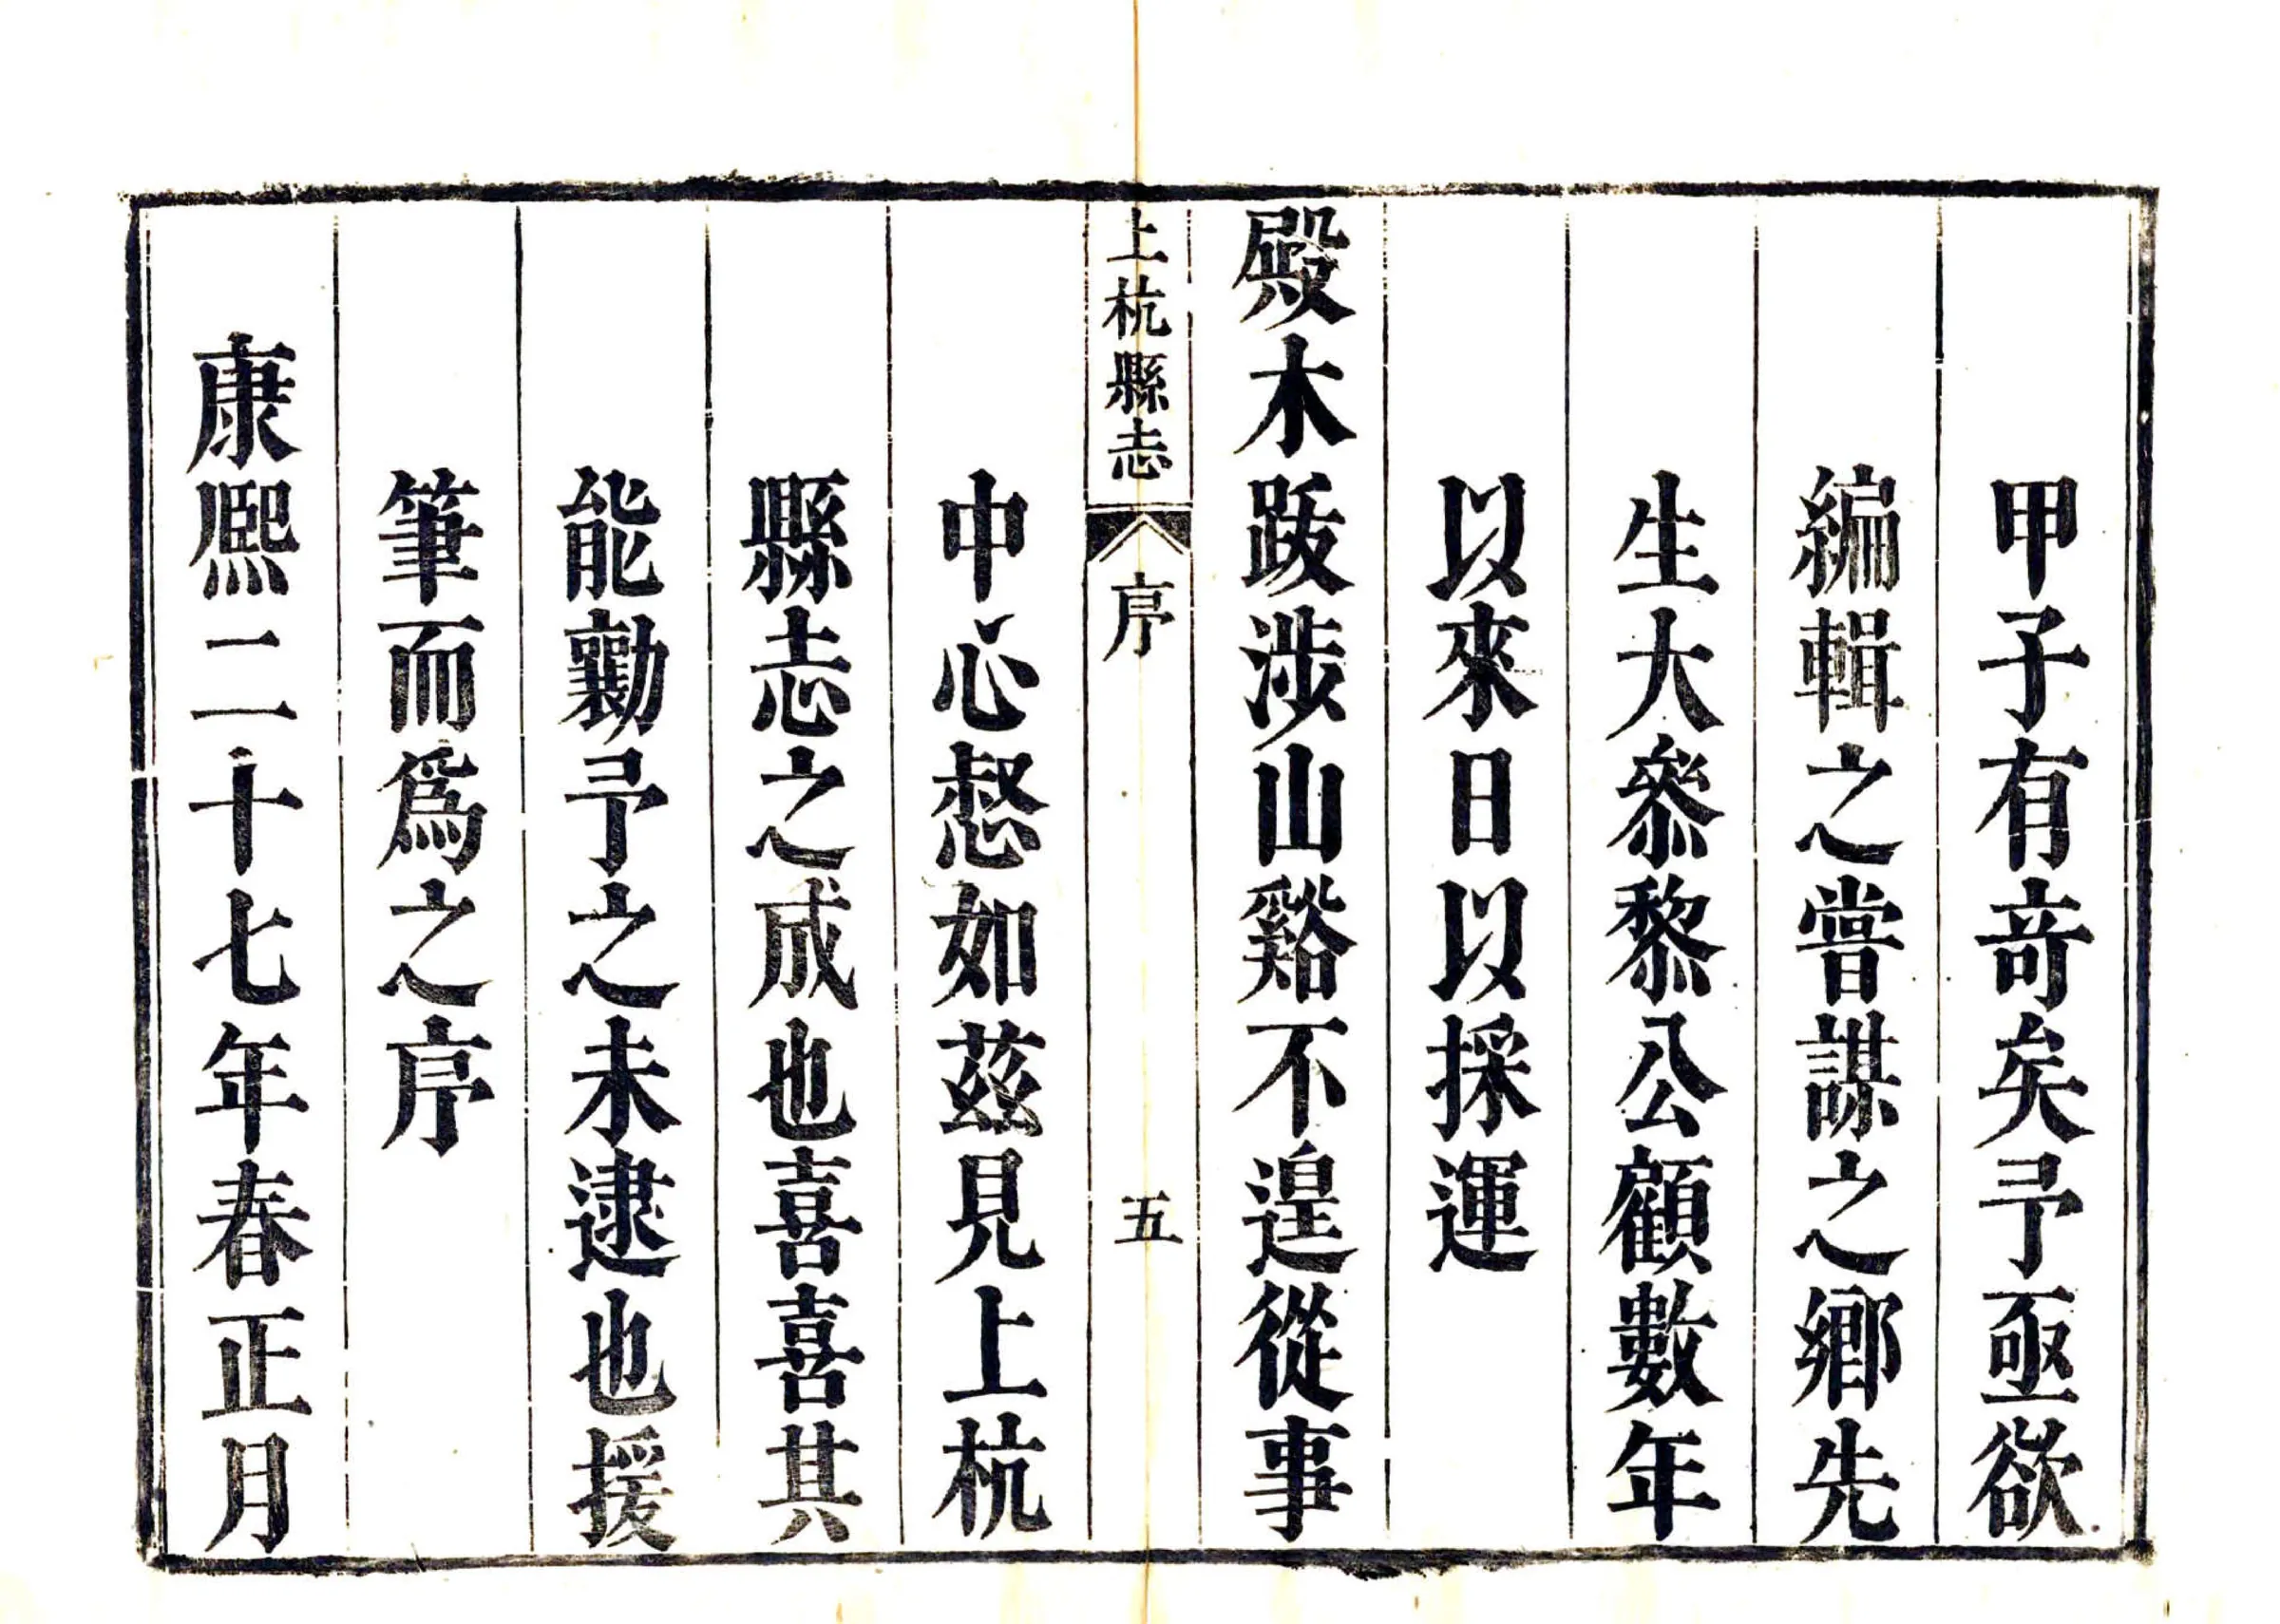 甲子有竒矣予亟欲
編輯之嘗謀之鄉先
生大叅黎公顧數年
以來日以採運
殿木跋涉山谿不遑從事
上杭縣志 序 五
中心惄如茲見上杭
縣志之成也喜喜其
能勷予之未逮也援
筆而爲之序
康熙二十七年春正月